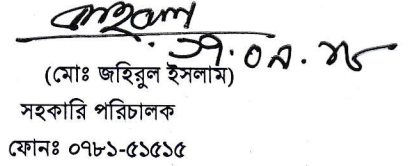 (মোঃ জহিরুল ইসলাম)
সহকারি পরিচালক
ফোনঃ ০৭৮১-৫১৫১৫